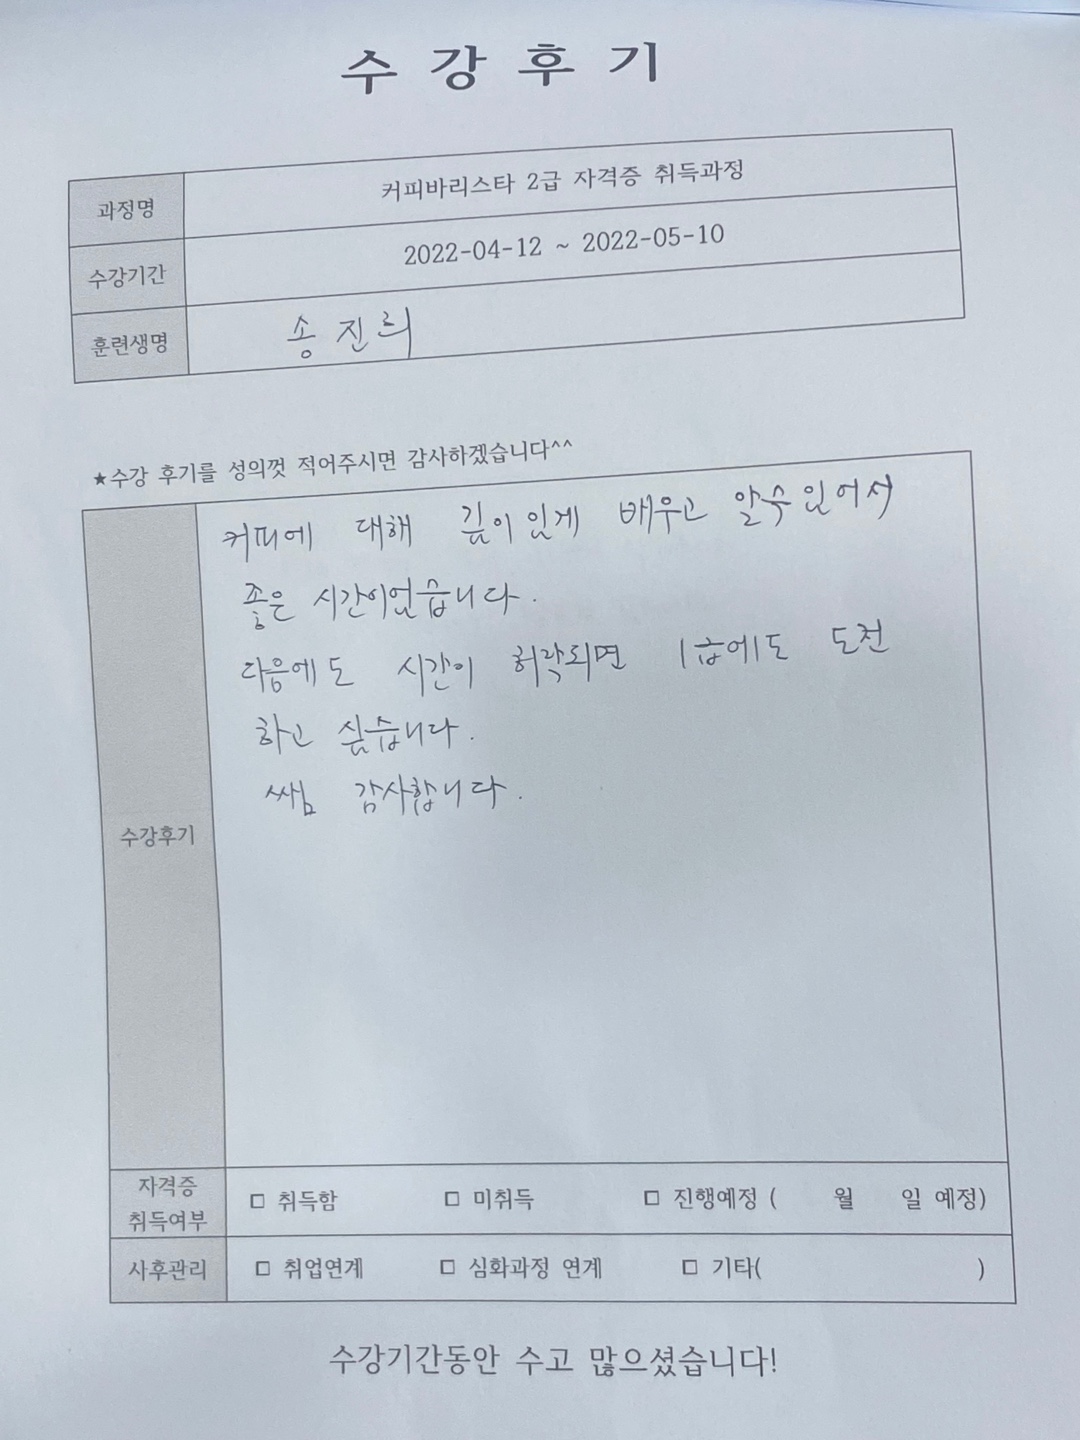 수 강 후 기
과정명 커피바리스타 2급 자격증 취득과정
수강기간 2022-04-12 ~ 2022-05-10
훈련생명 송진희
★수강 후기를 성의껏 적어주시면 감사하겠습니다^^
수강후기
커피에 대해 깊이있게 배우고 알수있어서
좋은 시간이었습니다.
다음에도 시간이 허락되면 1급에도 도전
하고 싶습니다.
쌤 감사합니다.
자격증
취득여부
□ 취득함 □ 미취득 □ 진행예정 ( 월 일 예정)
사후관리 □ 취업연계 □ 심화과정 연계 □ 기타( )
수강기간동안 수고 많으셨습니다!